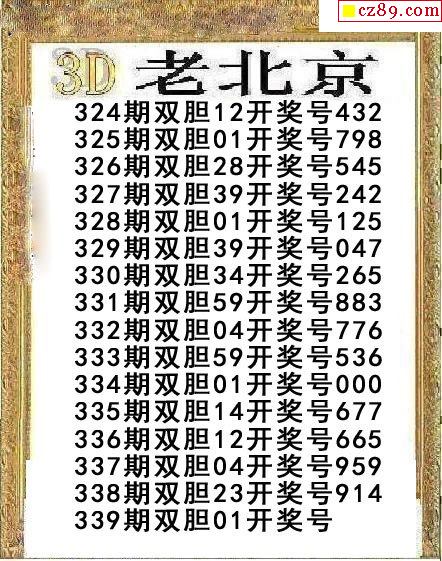 cz89.com
3D 老北京
324期双胆12开奖号432
325期双胆01开奖号798
326期双胆28开奖号545
327期双胆39开奖号242
328期双胆01开奖号125
329期双胆39开奖号047
330期双胆34开奖号265
331期双胆59开奖号883
332期双胆04开奖号776
333期双胆59开奖号536
334期双胆01开奖号000
335期双胆14开奖号677
336期双胆12开奖号665
337期双胆04开奖号959
338期双胆23开奖号914
339期双胆01开奖号